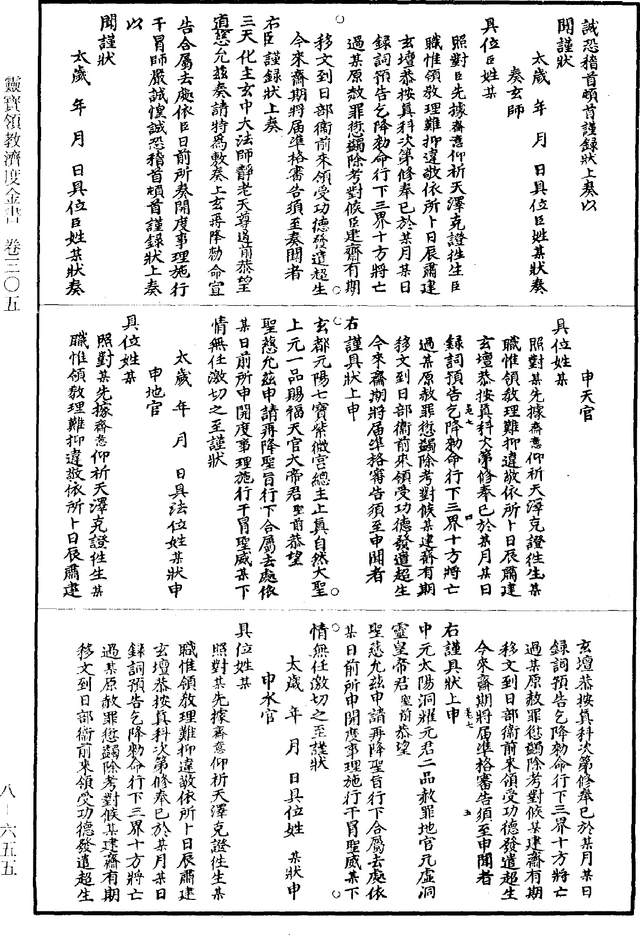 誠恐稽首頓首謹錄狀上奏以
聞謹狀
太歲 年 月 日具位臣姓某狀奏
奏玄師
具位臣姓某
照對臣先據齋意仰祈天澤克證徃生臣
職惟領敎理難抑違敬依所卜日辰肅建
玄壇恭按眞科次第修奉已於某月某日
錄詞預告乞降勑命行下三界十方將亡
過某原赦罪愆蠲除考對候臣建齋有期
移文到日部衞前來領受功德發遣超生
今來齋期將屆準格審告須至奏聞者
右臣謹錄狀上奏
三天化主玄中大法師靜老天尊道前恭望
道慈允兹奏請特爲敷奏上玄再降勑命宣
告合屬去處依臣日前所奏開度事理施行
干冒師嚴誠惶誠恐稽首頓首謹錄狀上奏
以
聞謹狀
太歲 年 月 日具位臣姓某狀奏
申天官
具位姓某
照對某先據齋意仰祈天澤克證徃生某
職惟領敎理難抑違敬依所卜日辰肅建
玄壇恭按眞科次第修奉已於某月某日
錄詞預告乞降勑命行下三界十方將亡
過某原赦罪愆蠲除考對候某建齋有期
移文到日部衞前來領受功德發遣超生
今來齋期將屆準格審告須至申聞者
右謹具狀上申
玄都元陽七寶紫微宮總主上眞自然大聖
上元一品賜福天官大帝君聖前恭望
聖慈允兹申請再降聖旨行下合屬去處依
某日前所申開度事理施行干冒聖威某下
情無任激切之至謹狀
太歲 年 月 日具法位姓某狀申
申地官
具位姓某
照對某先據齋意仰祈天澤克證徃生某
職惟領敎理難抑違敬依所卜日辰肅建
玄壇恭按眞科次第修奉已於某月某日
錄詞預告乞降勑命行下三界十方將亡
過某原赦罪愆蠲除考對候某建齋有期
移文到日部衞前來領受功德發遣超生
今來齋期將屆準格審告須至申聞者
右謹具狀上申
中元太陽洞耀元君二品赦罪地官元虛洞
靈皇帝君聖前恭望
聖慈允兹申請再降聖旨行下合屬去處依
某日前所申開度事理施行干冒聖威某下
情無任激切之至謹狀
太歲 年 月 日具位姓 某狀申
申水官
具位姓某
照對某先據齋意仰祈天澤克證徃生某
職惟領敎理難抑違敬依所卜日辰肅建
玄壇恭按眞科次第修奉已於某月某日
錄詞預告乞降勑命行下三界十方將亡
過某原赦罪愆蠲除考對候某建齋有期
移文到日部衞前來領受功德發遣超生
靈寶領敎濟度金書 卷三〇五
八－六五五